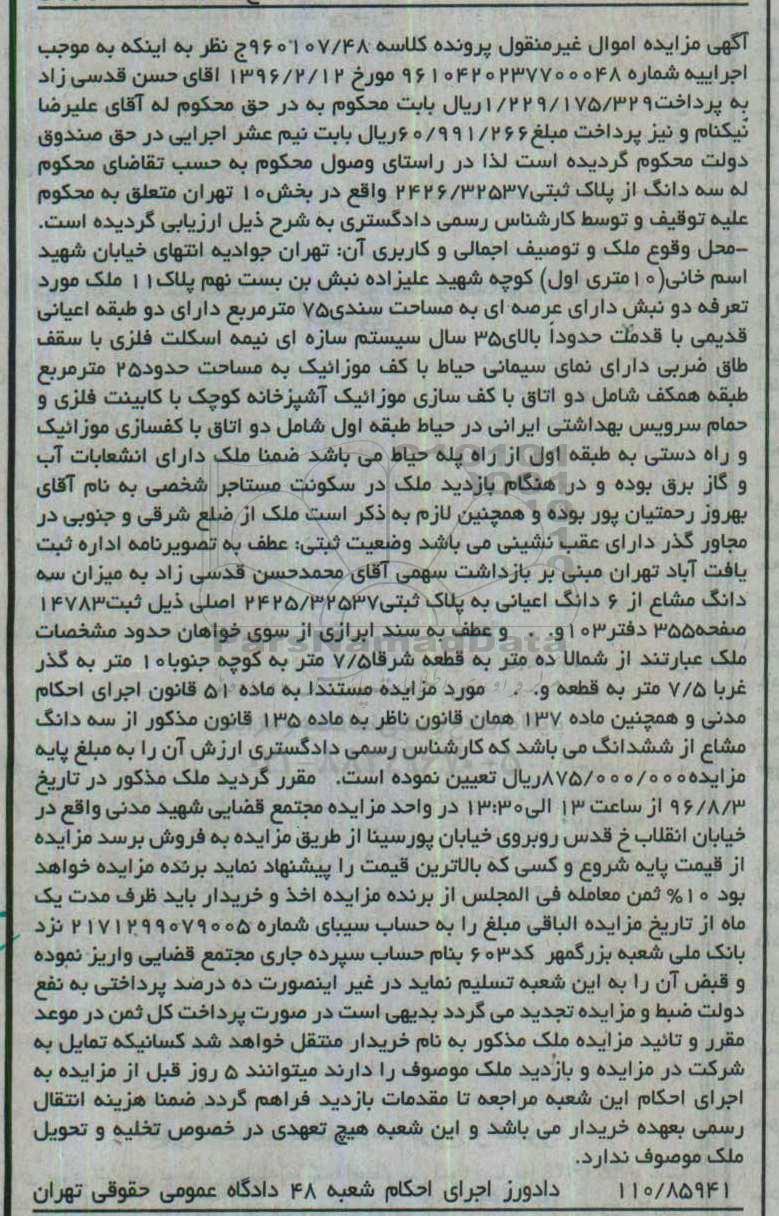 آگهی مزایده اموال غیرمنقول پرونده کلاسه ۹۶۰۱۰۷/۴۸ج نظر به اینکه به موجب
اجراییه شماره ۹۶۱۰۴۲۰۲۳۷۷۰۰۰۴۸ مورخ ۱۳۹۶/۲/۱۲ اقای حسن قدسی زاد
به پرداخت۱/۲۲۹/۱۷۵/۳۲۹ریال بابت محکوم به در حق محکوم له آقای علیرضا
نیکنام و نیز پرداخت مبلغ۶۰/۹۹۱/۲۶۶ریال بابت نیم عشر اجرایی در حق صندوق
دولت محکوم گردیده است لذا در راستای وصول محکوم به حسب تقاضای محکوم
له سه دانگ از پلاک ثبتی۲۴۲۶/۳۲۵۳۷ واقع در بخش۱۰ تهران متعلق به محکوم
علیه توقیف و توسط کارشناس رسمی دادگستری به شرح ذیل ارزیابی گردیده است.
-محل وقوع ملک و توصیف اجمالی و کاربری آن: تهران جوادیه انتهای خیابان شهید
اسم خانی(۱۰متری اول) کوچه شهید علیزاده نبش بن بست نهم پلاک۱۱ ملک مورد
تعرفه دو نبش دارای عرصه ای به مساحت سندی۷۵ مترمربع دارای دو طبقه اعیانی
قدیمی با قدمت حدوداً بالای۳۵ سال سیستم سازه ای نیمه اسکلت فلزی با سقف
طاق ضربی دارای نمای سیمانی حیاط با کف موزائیک به مساحت حدود۲۵ مترمربع
طبقه همکف شامل دو اتاق با کف سازی موزائیک آشپزخانه کوچک با کابینت فلزی و
حمام سرویس بهداشتی ایرانی در حیاط طبقه اول شامل دو اتاق با کفسازی موزائیک
و راه دستی به طبقه اول از راه پله حیاط می باشد ضمنا ملک دارای انشعابات آب
و گاز برق بوده و در هنگام بازدید ملک در سکونت مستاجر شخصی به نام آقای
بهروز رحمتیان پور بوده و همچنین لازم به ذکر است ملک از ضلع شرقی و جنوبی در
مجاور گذر دارای عقب نشینی می باشد وضعیت ثبتی: عطف به تصویرنامه اداره ثبت
یافت آباد تهران مبنی بر بازداشت سهمی آقای محمدحسن قدسی زاد به میزان سه
دانگ مشاع از ۶ دانگ اعیانی به پلاک ثبتی۲۴۲۵/۳۲۵۳۷ اصلی ذیل ثبت۱۴۷۸۳
صفحه۳۵۵ دفتر۱۰۳و. . و عطف به سند ابرازی از سوی خواهان حدود مشخصات
ملک عبارتند از شمالا ده متر به قطعه شرقا۷/۵ متر به کوچه جنوبا۱۰ متر به گذر
غربا ۷/۵ متر به قطعه و. . مورد مزایده مستندا به ماده ۵۱ قانون اجرای احکام
مدنی و همچنین ماده ۱۳۷ همان قانون ناظر به ماده ۱۳۵ قانون مذکور از سه دانگ
مشاع از ششدانگ می باشد که کارشناس رسمی دادگستری ارزش آن را به مبلغ پایه
مزایده۸۷۵/۰۰۰/۰۰۰ریال تعیین نموده است. مقرر گردید ملک مذکور در تاریخ
۹۶/۸/۳ از ساعت ۱۳ الی۱۳:۳۰ در واحد مزایده مجتمع قضایی شهید مدنی واقع در
خیابان انقلاب خ قدس روبروی خیابان پورسینا از طریق مزایده به فروش برسد مزایده
از قیمت پایه شروع و کسی که بالاترین قیمت را پیشنهاد نماید برنده مزایده خواهد
بود ۱۰% ثمن معامله فی المجلس از برنده مزایده اخذ و خریدار باید ظرف مدت یک
ماه از تاریخ مزایده الباقی مبلغ را به حساب سیبای شماره ۲۱۷۱۲۹۹۰۷۹۰۰۵ نزد
بانک ملی شعبه بزرگمهر کد۶۰۳ بنام حساب سپرده جاری مجتمع قضایی واریز نموده
و قبض آن را به این شعبه تسلیم نماید در غیر اینصورت ده درصد پرداختی به نفع
دولت ضبط و مزایده تجدید می گردد بدیهی است در صورت پرداخت کل ثمن در موعد
مقرر و تائید مزایده ملک مذکور به نام خریدار منتقل خواهد شد کسانیکه تمایل به
شرکت در مزایده و بازدید ملک موصوف را دارند میتوانند ۵ روز قبل از مزایده به
اجرای احکام این شعبه مراجعه تا مقدمات بازدید فراهم گردد ضمنا هزینه انتقال
رسمی بعهده خریدار می باشد و این شعبه هیچ تعهدی در خصوص تخلیه و تحویل
ملک موصوف ندارد.
۱۱۰/۸۵۹۴۱ دادورز اجرای احکام شعبه ۴۸ دادگاه عمومی حقوقی تهران